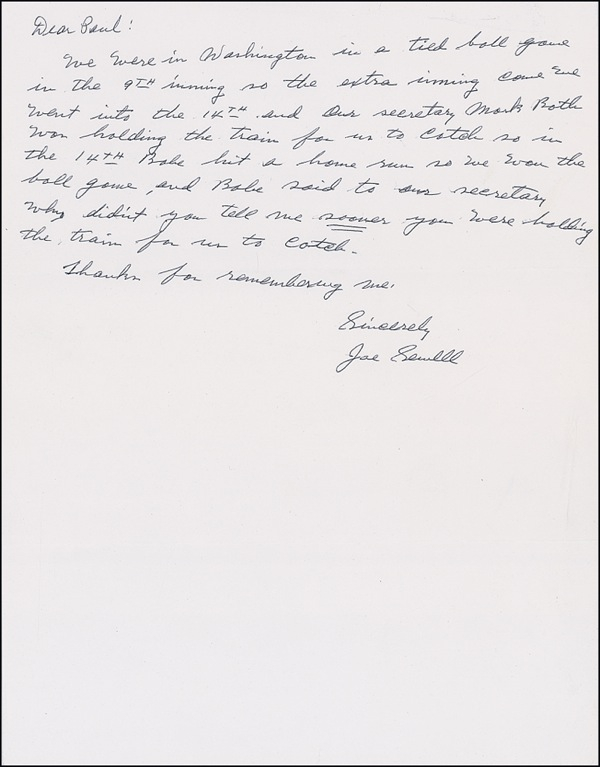 Dear Paul:
We were in Washington in a tied ball game
in the 9TH inning so the extra inning come we
went into the 14TH and our secretary Mark Roth
was holding the train for us to catch so in
the 14TH Babe hit a home run so we won the
ball game, and Babe said to our secretary
why didn't you tell me sooner you were holding
the train for us to catch.
Thanks for remembering me.
Sincerely
Joe Sewell